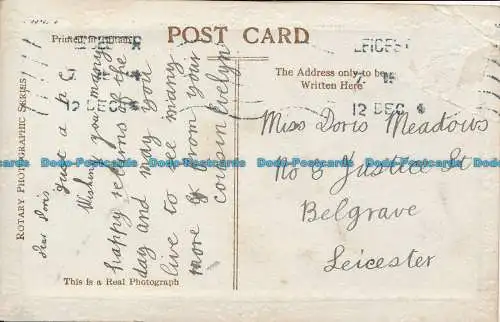 POST CARD
Printed in Britain
The Address only to be
Written Here
ROTARY PHOTOGRAPHIC SERIES
This is a Real Photograph
LEICEST
12 DEC
12 DEC
Dear Doris
Just a p c
Wishing you many
happy returns of the
day and may you
live to see many
more of from your
cousin Evelyn
Miss Doris Meadows
No 8 Justice St
Belgrave
Leicester
Bobs-Postcards